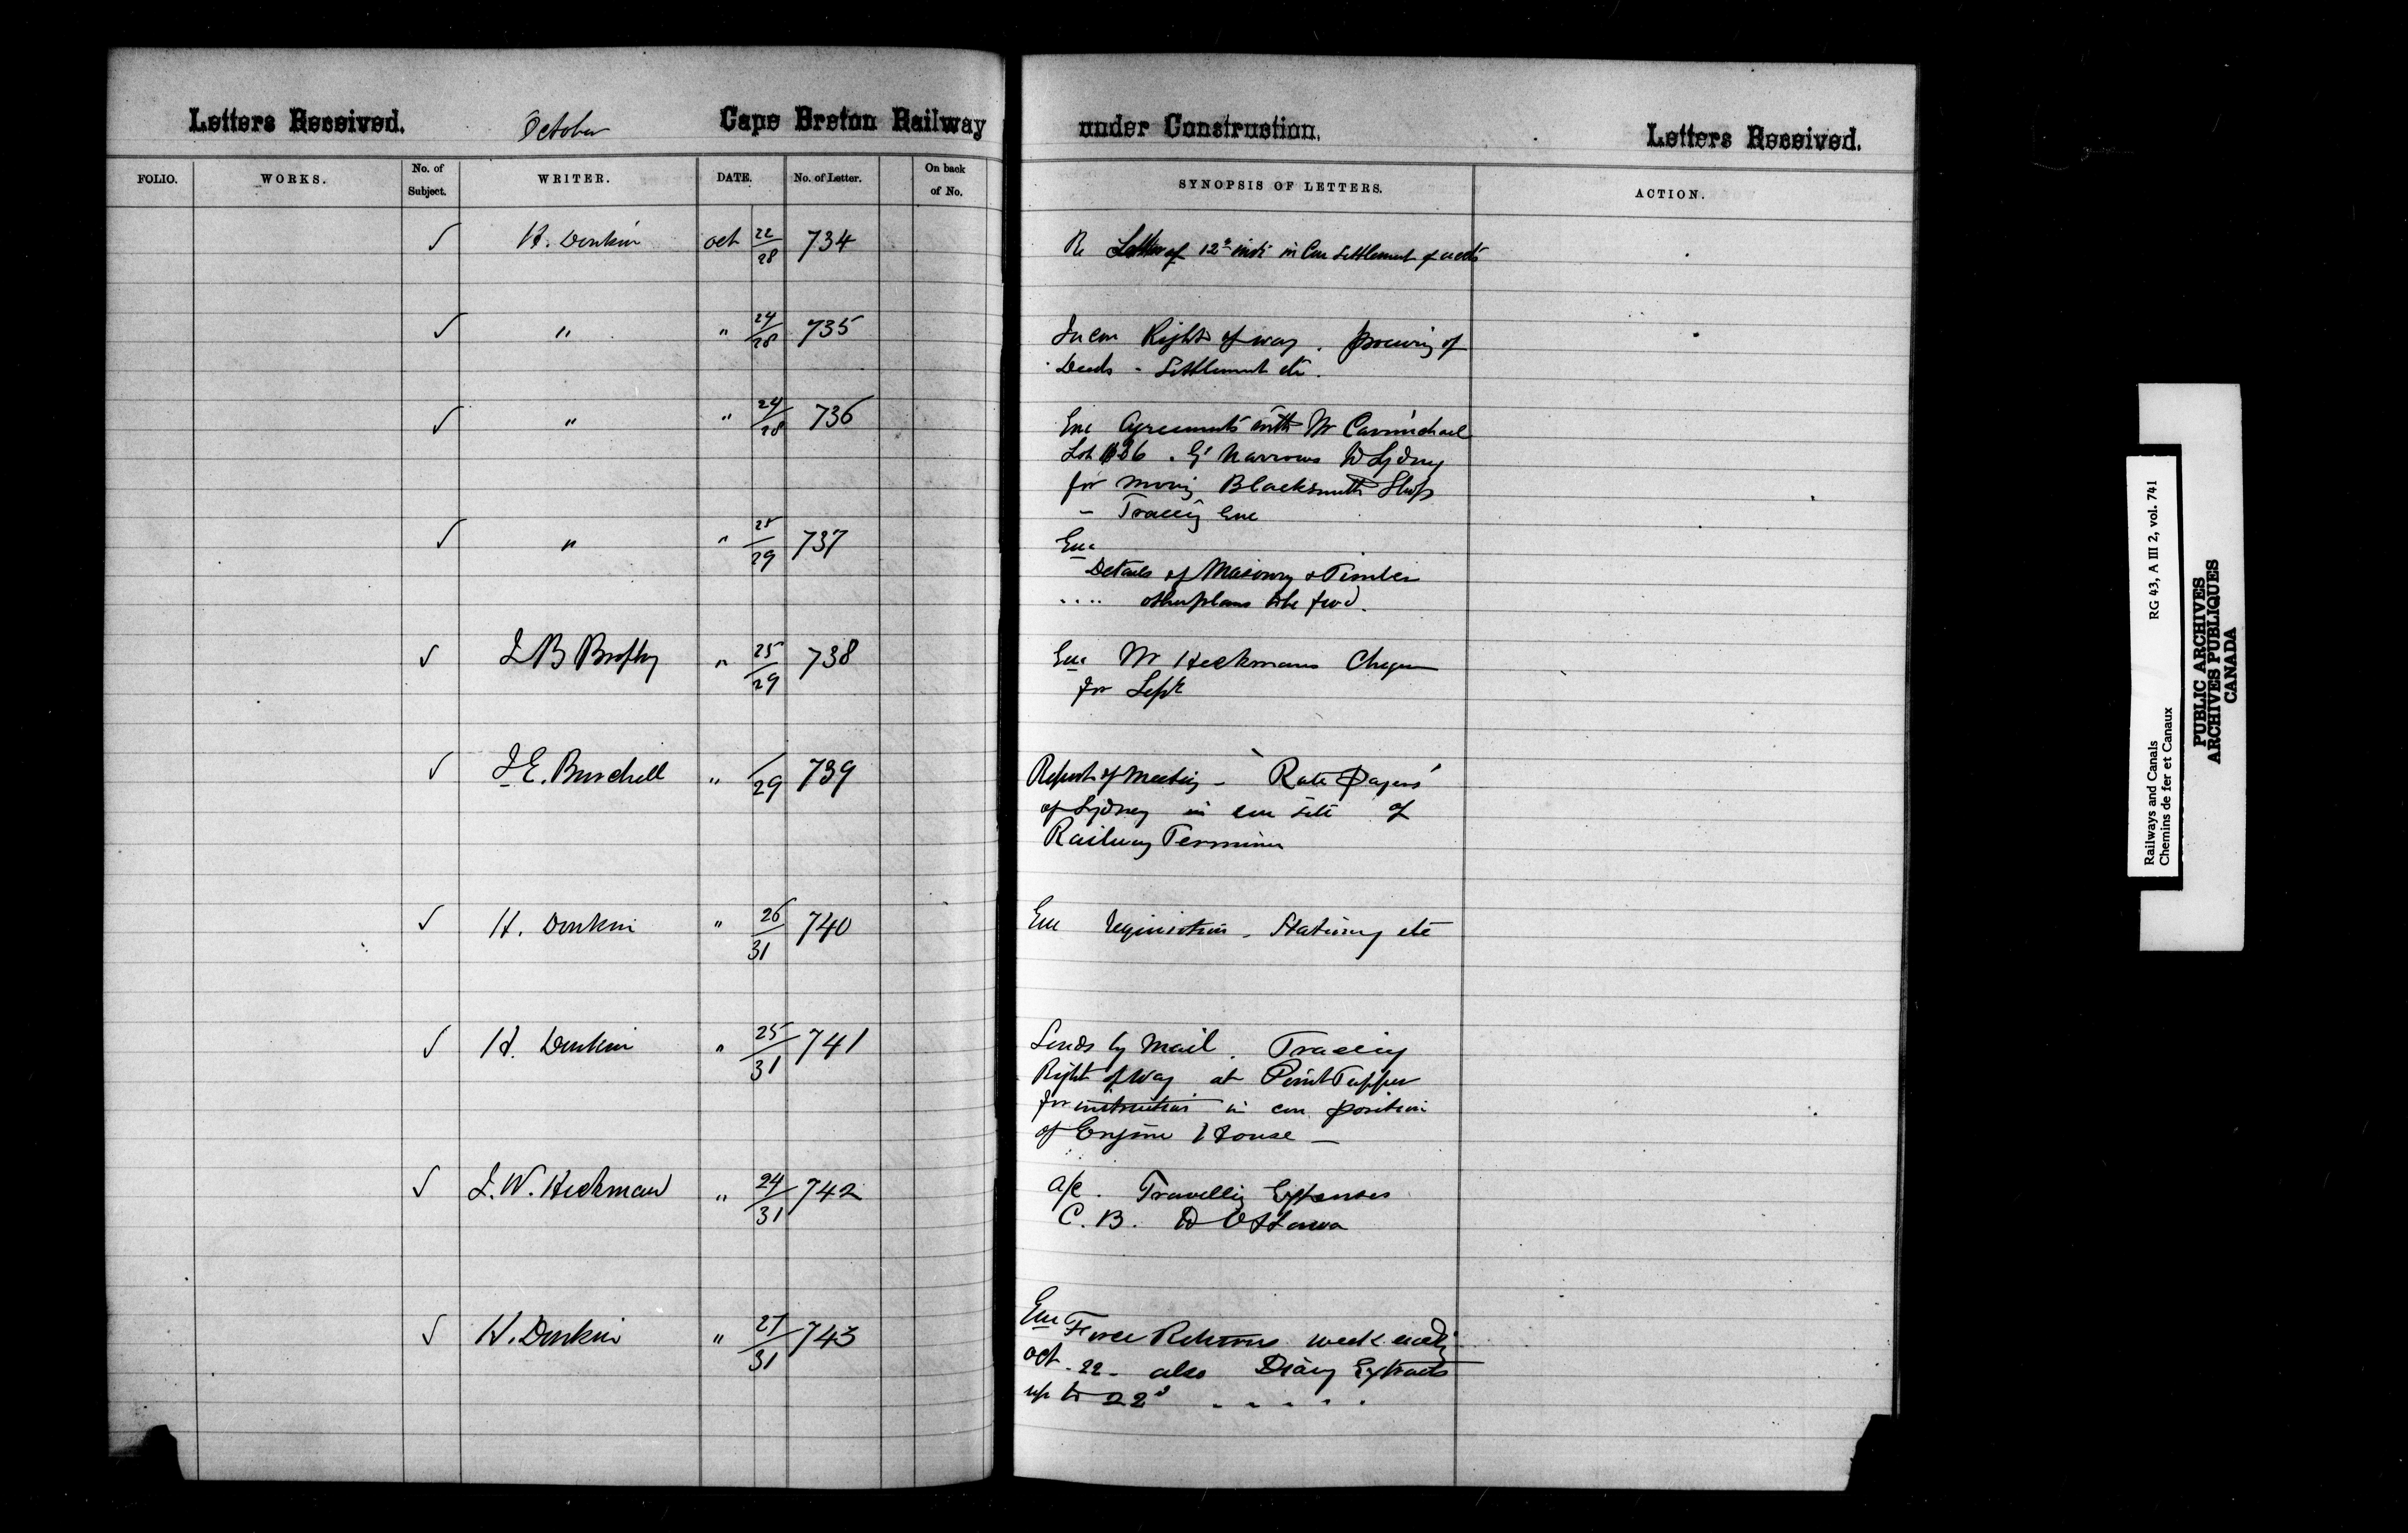 Letters Received. October Cape Breton Railway under Construction. Letters Received.
FOLIO. WORKS. No. of Subject. WRITER. DATE. No. of Letter. On back of No. SYNOPSIS OF LETTERS. ACTION.
✓ H. Donkin Oct 22/28 734 Re Letter of 12th inst in Con Settlement of accts
✓ " " 24/28 735 In con Right of way. procuring of
Deeds - Settlement etc.
✓ " " 24/28 736 Enc Agreements with Mr Carmichael
Lot 126. G' Narrows to Sydney
for moving Blacksmith Shop
- Tracing Enc
✓ " " 25/29 737 Enc
Details of Masonry & Timber
.... other plans to be fwd.
✓ J B Brophy " 25/29 738 Enc Mr Hickmans Cheque
for Septr
✓ J. E. Burchell " /29 739 Report of Meeting - "Rate Payers"
of Sydney in con site of
Railway Terminus
✓ H. Donkin " 26/31 740 Enc requisition - Stationery etc
✓ H. Donkin " 25/31 741 Sends by Mail. Tracing
Right of Way at Point Tupper
for instruction in con position
of Engine House -
✓ J. W. Hickman " 24/31 742 a/c. Travelling Expenses
C. B. to Ottawa
✓ H. Donkin " 27/31 743 Enc Force Returns week ending
Oct. 22 - also Diary Extracts
up to 22d - - - - .
Railways and Canals RG 43, A III 2, vol. 741
Chemins de fer et Canaux
PUBLIC ARCHIVES
ARCHIVES PUBLIQUES
CANADA